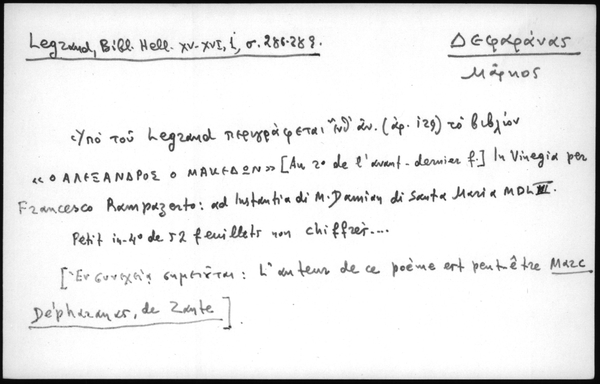 Legrand, Bibl. Hell. XV-XVI, i, σ. 286-289.
Δεφαράνας
Μάρκος
Ὑπό τοῦ Legrand περιγράφεται (ἀρ. 129) τό βιβλίον
«Ο ΑΛΕΞΑΝΔΡΟΣ Ο ΜΑΚΕΔΩΝ» [Au 2° de l'avant-dernier f.] In Vinegia per
Francesco Rampazetto: ad Instantia di M. Damian di Santa Maria MDLIII.
Petit in-4° de 52 feuillets non chiffrés....
[Ἐν συνεχείᾳ σημειοῦται: L'auteur de ce poème est peut-être Marc
Dépharanas, de Zante]